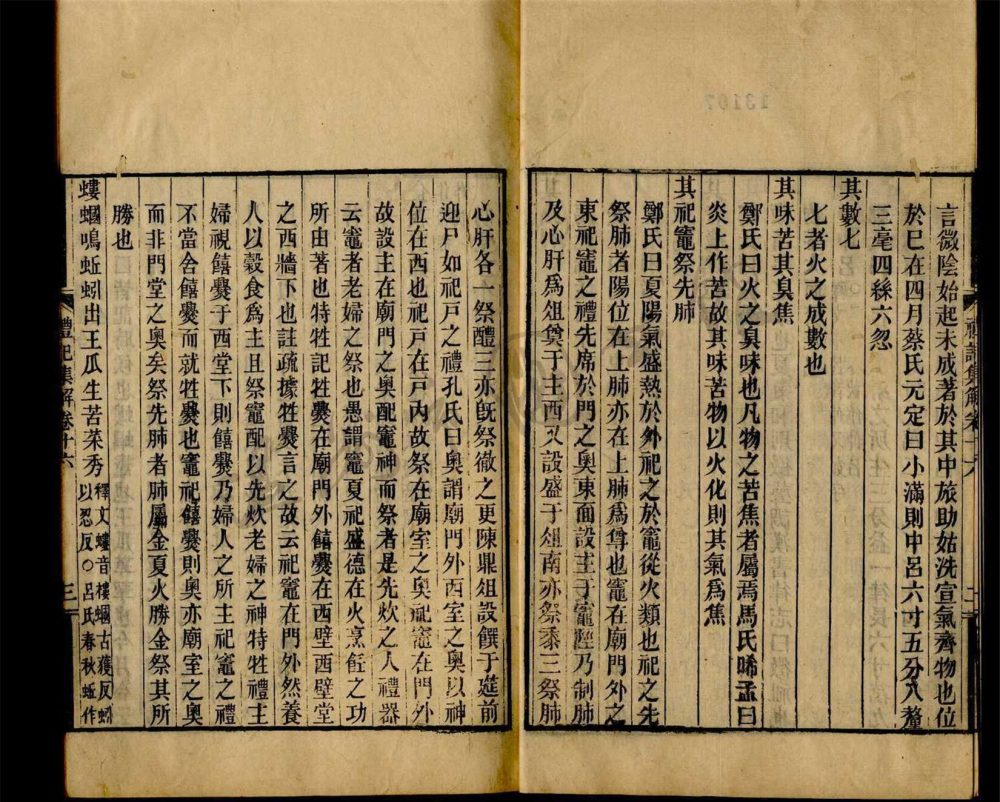 言微陰始起未成著於其中旅助姑洗宣氣齊物也位
於巳在四月蔡氏元定曰小滿則中呂六寸五分八釐
三毫四絲六忽
其數七
七者火之成數也
其味苦其臭焦
鄭氏曰火之臭味也凡物之苦焦者屬焉馬氏晞孟曰
炎上作苦故其味苦物以火化則其氣爲焦
其祀竈祭先肺
鄭氏曰夏陽氣盛熱於外祀之於竈從火類也祀之先
祭肺者陽位在上肺亦在上肺爲尊也竈在廟門外之
東祀竈之禮先席於門之奧東面設主于竈陘乃制肺
及心肝爲俎奠于主西又設盛于俎南亦祭黍三祭肺
心肝各一祭醴三亦旣祭徹之更陳鼎俎設饌于筵前
迎尸如祀戶之禮孔氏曰奧謂廟門外西室之奧以神
位在西也祀戶在戶內故祭在廟室之奧祀竈在門外
故設主在廟門之奧配竈神而祭者是先炊之人禮器
云竈者老婦之祭也愚謂竈夏祀盛德在火烹飪之功
所由著也特牲記牲爨在廟門外饎爨在西壁西壁堂
之西牆下也註疏據牲爨言之故云祀竈在門外然養
人以穀食爲主且祭竈配以先炊老婦之神特牲禮主
婦視饎爨于西堂下則饎爨乃婦人之所主祀竈之禮
不當舍饎爨而就牲爨也竈祀饎爨則奧亦廟室之奧
而非門堂之奧矣祭先肺者肺屬金夏火勝金祭其所
勝也
螻蟈鳴蚯蚓出王瓜生苦菜秀
釋文螻音樓蟈古獲反蚓
以忍反○呂氏春秋蚯作
禮記集解卷十六
二
禮記集解卷十六
三
13107